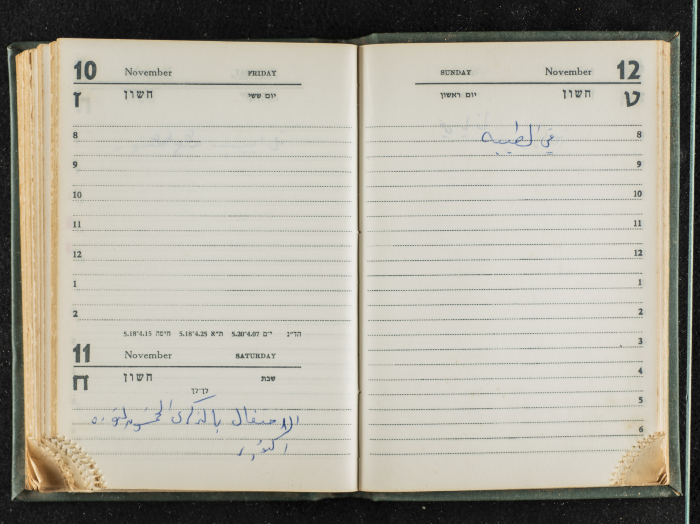 10 November FRIDAY
ז חשון יום ששי
8
9
10
11
12
1
2
הד״נ י״ם 5.20*4.07 ת״א 5.18*4.25 חיפה 5.18*4.15
11 November SATURDAY
ח חשון שבת
לך־לך
الاحتفال بالذكرى الخمسين لثورة
اكتوبر
SUNDAY November 12
יום ראשון חשון ט
في الطيبه
8
9
10
11
12
1
2
3
4
5
6